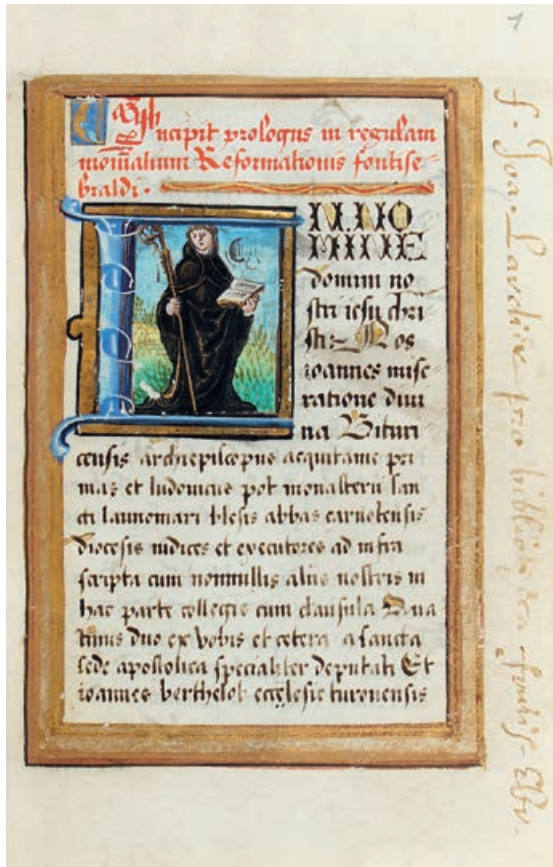 1
Incipit prologus in regulam
monialium Reformationis fontise-
braldi.
IN NO
MINE
domini no
stri iesu chri
sti. Nos
ioannes mise
ratione divi
na Bituri
censis archiepiscopus acquitanie pri
mas et ludovicus pot monasterii san
cti launomari blesis abbas carnotensis
diocesis iudices et executores ad infra
scripta cum nonnullis aliis nostris in
hac parte collegis cum clausula Qua
tinus duo ex vobis et cetera a sancta
sede apostolica specialiter deputati Et
ioannes berthelot ecclesie turonensis
f. Joa. pro bibliotheca